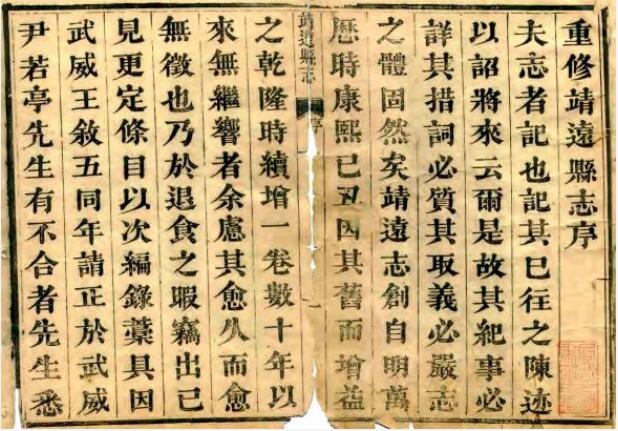 重修靖遠縣志序
夫志者記也記其已往之陳迹
以詔將來云爾是故其紀事必
詳其措詞必質其取義必嚴志
之體固然矣靖遠志創自明萬
歷時康熙己丑因其舊而增益
靖遠縣志
序
之乾隆時續增一卷數十年以
來無繼響者余慮其愈久而愈
無徵也乃於退食之暇竊出已
見更定條目以次編錄藁具因
武威王敘五同年請正於武威
尹若亭先生有不合者先生悉